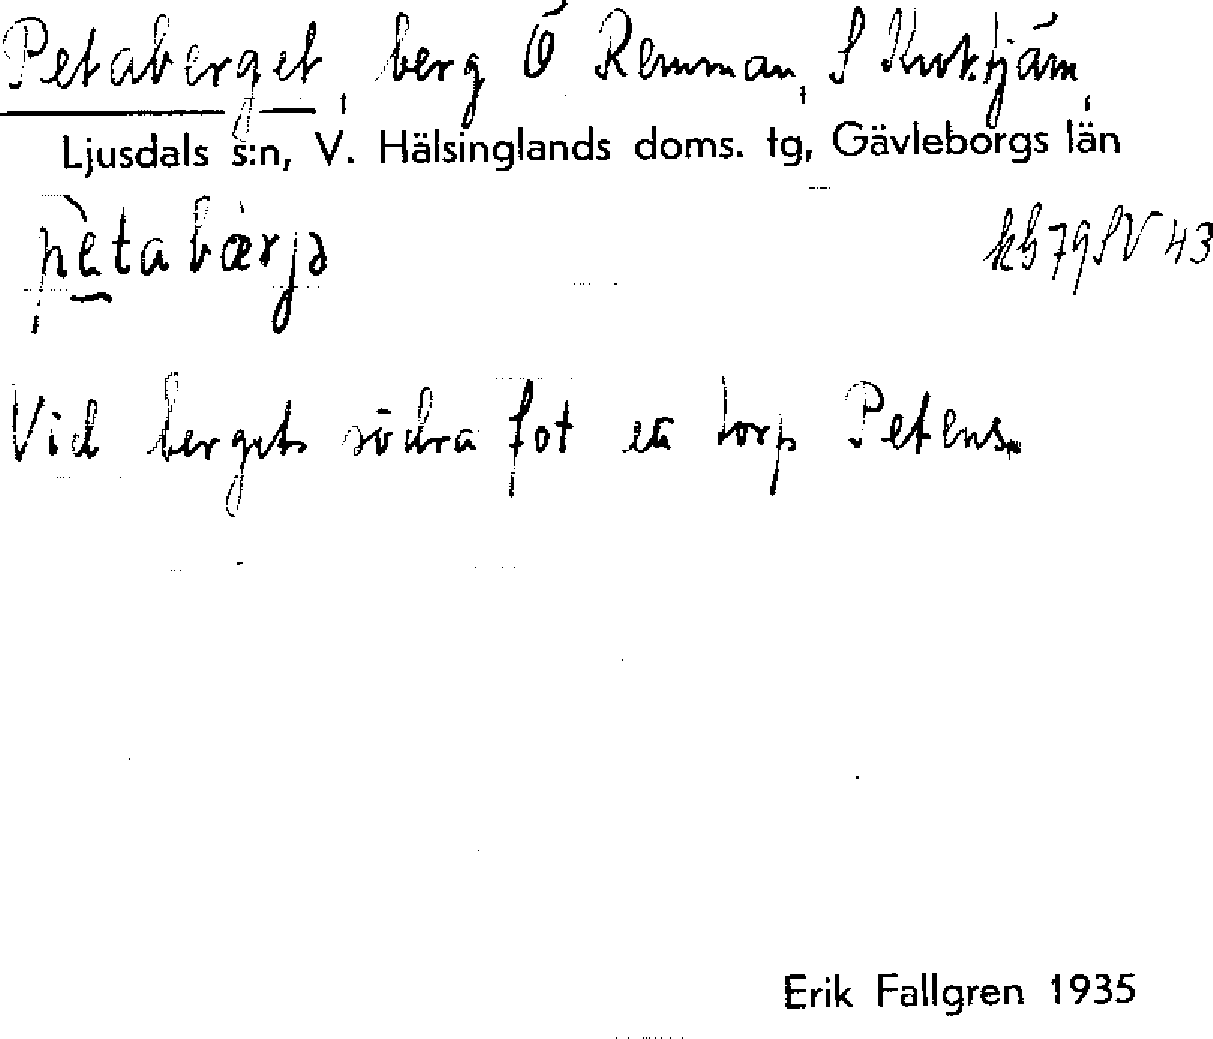 Petaberget, berg Ö Remman, S Kroktjärn,
Ljusdals s:n, V. Hälsinglands doms. tg, Gävleborgs län
pètabærjə
kb 79 SV 43
Vid bergets södra fot ett torp Petens.
Erik Fallgren 1935